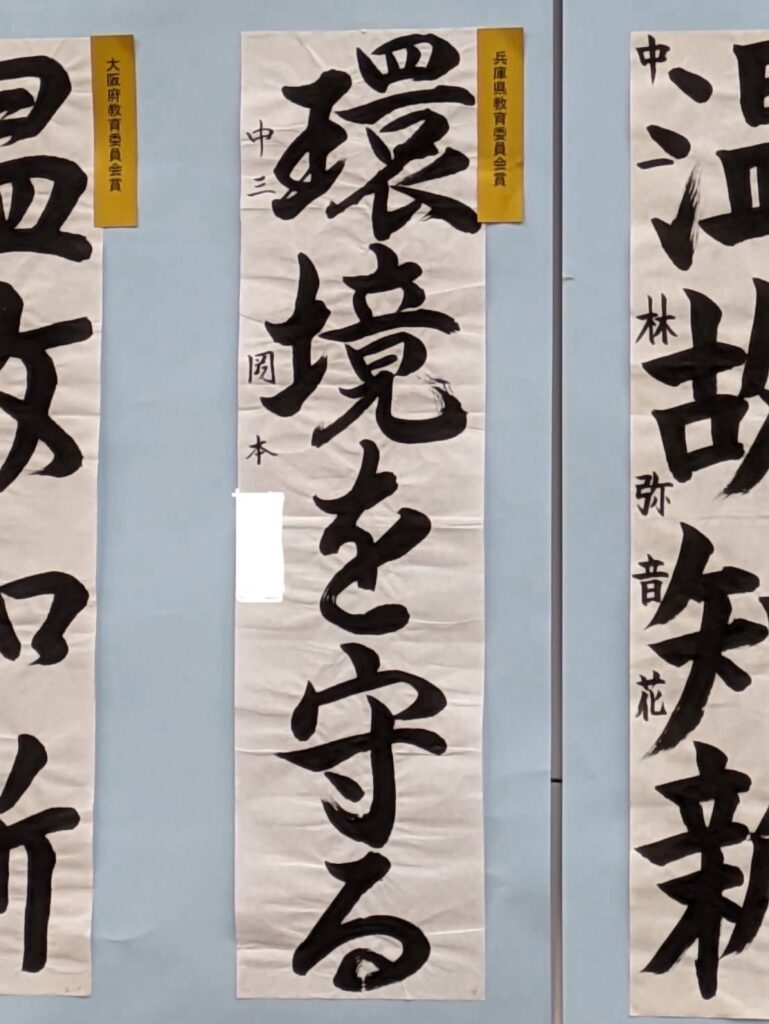 温故知新
中二 林 弥音花
兵庫県教育委員会賞
環境を守る
中三 岡本
大阪府教育委員会賞